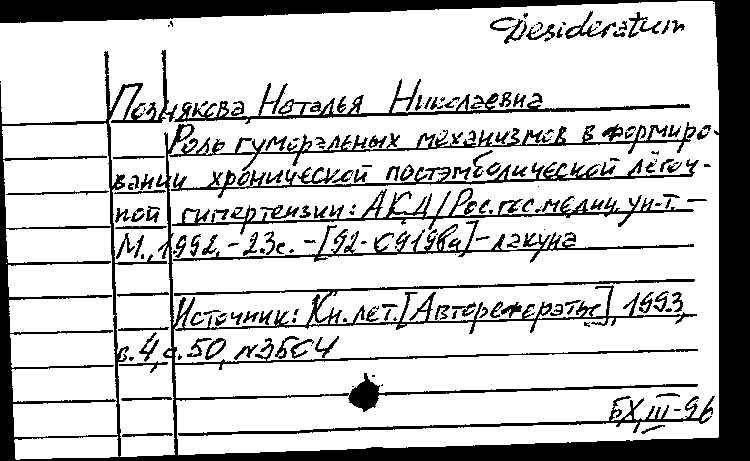 Desideratum
Познякова, Наталья Николаевна
Роль гуморальных механизмов в формиро-
вании хронической постэмболической лёгоч-
ной гипертензии: АКД / Рос. гос. медиц. ун-т. –
М., 1992. – 23с. – [92-6919ва] – лакуна
Источник: Кн. лет. [Авторефераты], 1993,
в. 4, с. 50, №3604
БХ, III-96